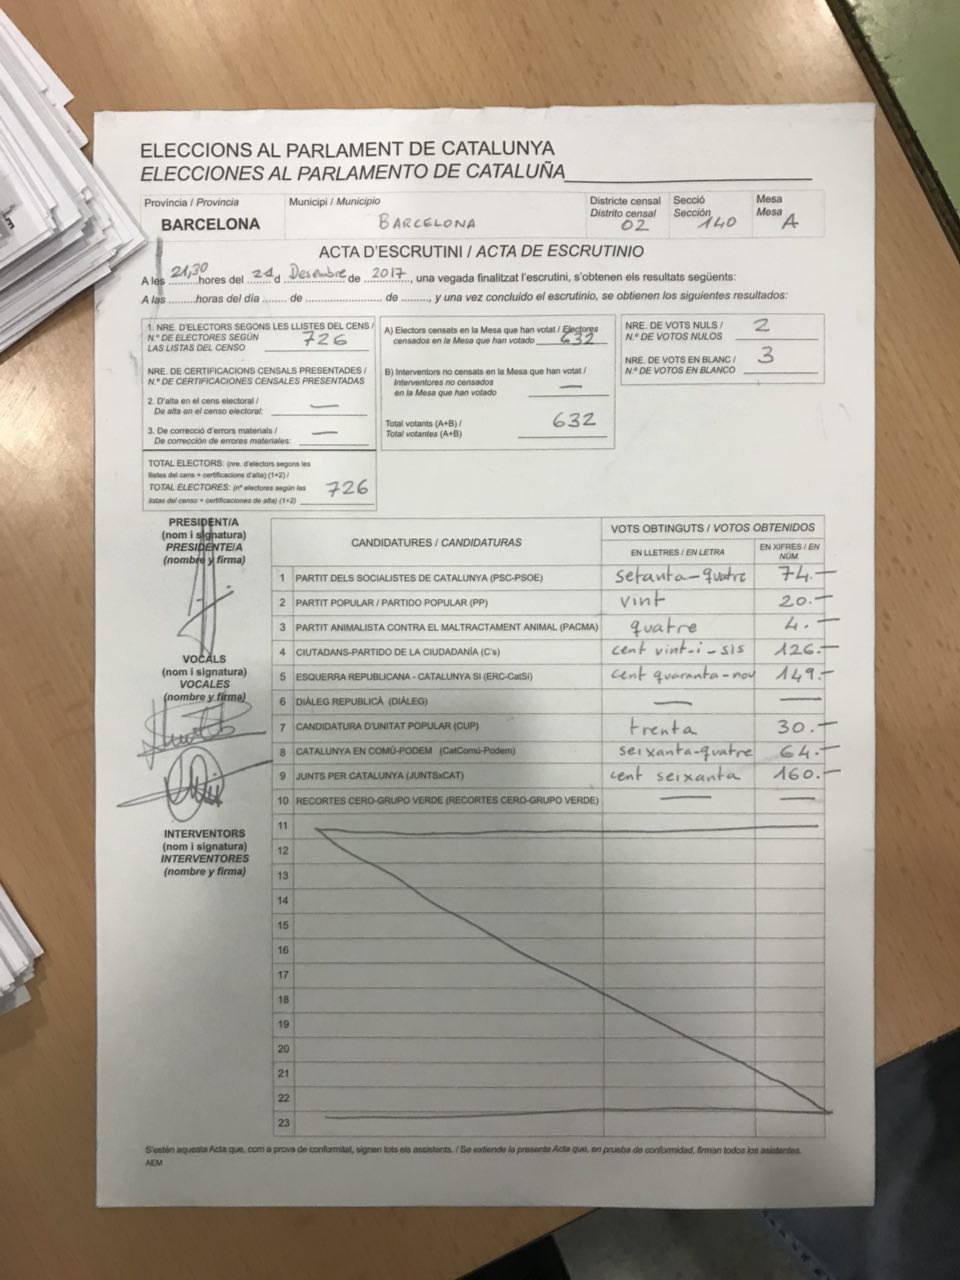 ELECCIONS AL PARLAMENT DE CATALUNYA
ELECCIONES AL PARLAMENTO DE CATALUÑA
Província / Provincia
BARCELONA
Municipi / Municipio
BARCELONA
Districte censal
Distrito censal
02
Secció
Sección
140
Mesa
Mesa
A
ACTA D'ESCRUTINI / ACTA DE ESCRUTINIO
A les 21,30 hores del 21 d Desembre de 2017, una vegada finalitzat l'escrutini, s'obtenen els resultats següents:
A las ........horas del día ....... de ...................... de ........, y una vez concluido el escrutinio, se obtienen los siguientes resultados:
1. NRE. D'ELECTORS SEGONS LES LLISTES DEL CENS /
N.º DE ELECTORES SEGÚN
LAS LISTAS DEL CENSO 726
NRE. DE CERTIFICACIONS CENSALS PRESENTADES /
N.º DE CERTIFICACIONES CENSALES PRESENTADAS
2. D'alta en el cens electoral /
De alta en el censo electoral: —
3. De correcció d'errors materials /
De corrección de errores materiales: —
TOTAL ELECTORS: (nre. d'electors segons les
llistes del cens + certificacions d'alta) (1+2) /
TOTAL ELECTORES: (nº electores según las
listas del censo + certificaciones de alta) (1+2) 726
A) Electors censats en la Mesa que han votat / Electores
censados en la Mesa que han votado 632
B) Interventors no censats en la Mesa que han votat /
Interventores no censados
en la Mesa que han votado —
Total votants (A+B) /
Total votantes (A+B) 632
NRE. DE VOTS NULS /
N.º DE VOTOS NULOS 2
NRE. DE VOTS EN BLANC /
N.º DE VOTOS EN BLANCO 3
PRESIDENT/A
(nom i signatura)
PRESIDENTE/A
(nombre y firma)
VOCALS
(nom i signatura)
VOCALES
(nombre y firma)
INTERVENTORS
(nom i signatura)
INTERVENTORES
(nombre y firma)
CANDIDATURES / CANDIDATURAS
VOTS OBTINGUTS / VOTOS OBTENIDOS
EN LLETRES / EN LETRA
EN XIFRES / EN NÚM.
1 PARTIT DELS SOCIALISTES DE CATALUNYA (PSC-PSOE) setanta-quatre 74.-
2 PARTIT POPULAR / PARTIDO POPULAR (PP) vint 20.-
3 PARTIT ANIMALISTA CONTRA EL MALTRACTAMENT ANIMAL (PACMA) quatre 4.-
4 CIUTADANS-PARTIDO DE LA CIUDADANÍA (C's) cent vint-i-sis 126.-
5 ESQUERRA REPUBLICANA - CATALUNYA SÍ (ERC-CatSí) cent quaranta-nou 149.-
6 DIÀLEG REPUBLICÀ (DIÀLEG) — —
7 CANDIDATURA D'UNITAT POPULAR (CUP) trenta 30.-
8 CATALUNYA EN COMÚ-PODEM (CatComú-Podem) seixanta-quatre 64.-
9 JUNTS PER CATALUNYA (JUNTSxCAT) cent seixanta 160.-
10 RECORTES CERO-GRUPO VERDE (RECORTES CERO-GRUPO VERDE) — —
11
12
13
14
15
16
17
18
19
20
21
22
23
S'estén aquesta Acta que, com a prova de conformitat, signen tots els assistents. / Se extiende la presente Acta que, en prueba de conformidad, firman todos los asistentes.
AEM